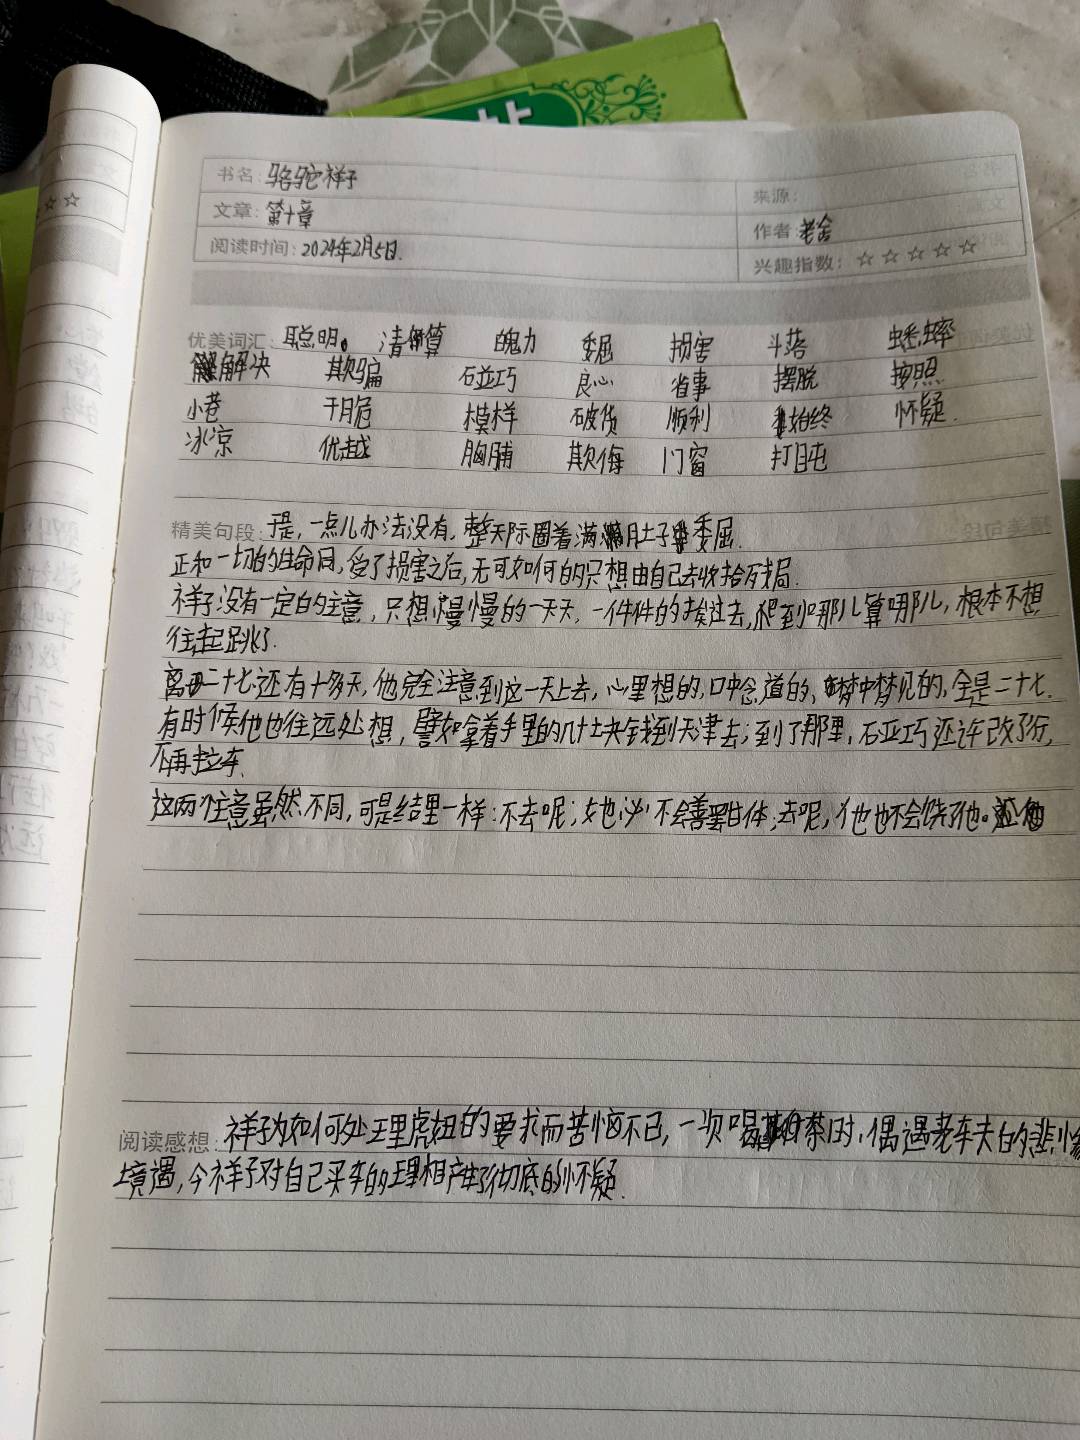 书名: 骆驼祥子
来源:
文章: 第十章
作者: 老舍
阅读时间: 2024年2月5日.
兴趣指数: ☆☆☆☆☆
优美词汇: 聪明。 清算 魄力 委屈 损害 斗落 蟋蟀
解决 欺骗 碰巧 良心 省事 摆脱 按照
小巷 干脆 模样 破货 顺利 始终 怀疑.
冰凉 优越 胸脯 欺侮 门窗 打盹
精美句段: 于是, 一点儿办法没有, 整天际圈着满肚子委屈.
正和一切的生命同, 受了损害之后, 无可如何的只想由自己去收拾残局.
祥子没有一定的主意, 只想慢慢的一天天, 一件件的挨过去, 爬到哪儿算哪儿, 根本不想
往起跳了.
离二十七还有十多天, 他完全注意到这一天上去, 心里想的, 口中念道的, 梦中梦见的, 全是二十七.
有时候他也往远处想, 譬如拿着手里的几十块钱到天津去; 到了那里, 碰巧还许改了行,
不再拉车.
这两个主意虽然不同, 可是结里一样: 不去呢; 她必不会善罢甘休; 去呢, 他也不会饶了他。
阅读感想: 祥子为如何处理虎妞的要求而苦恼不已, 一次喝茶时, 偶遇老车夫的悲惨
境遇, 令祥子对自己买车的理相产生了彻底的怀疑.